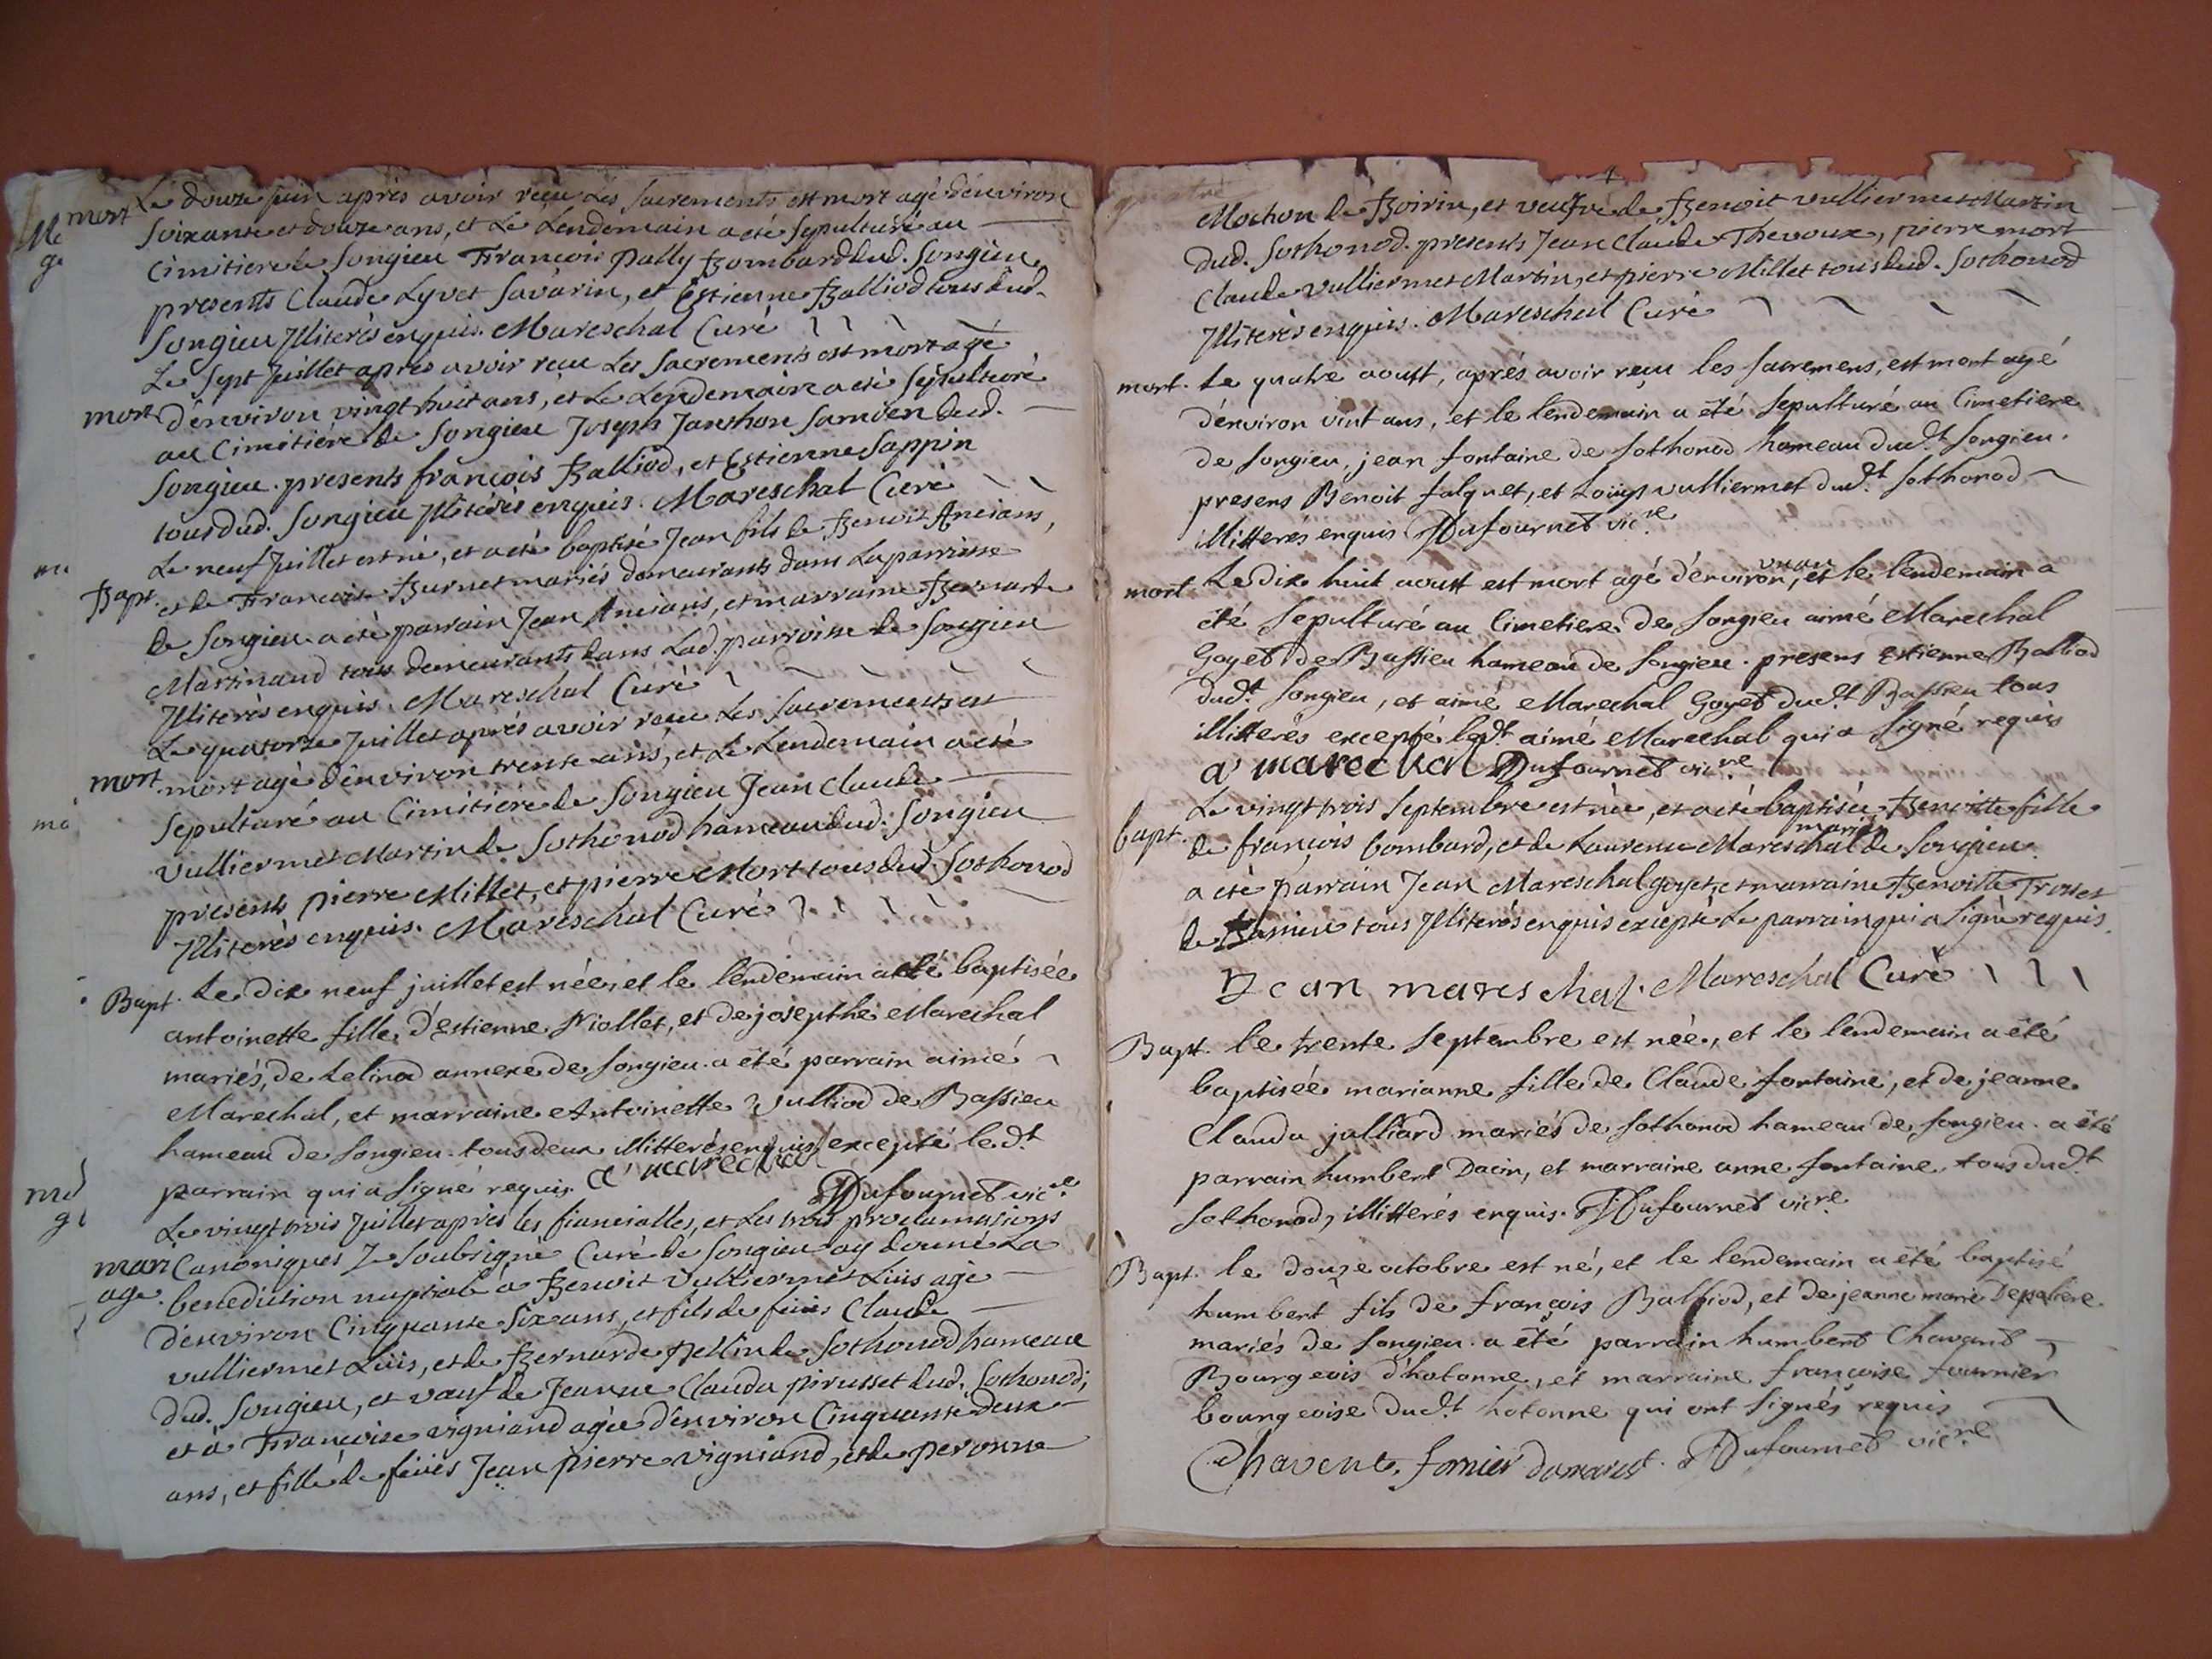 mort Le douze juin après avoir reçu Les sacrements est mort agé d'environ
soixante et douze ans, et Le Lendemain a eté sepulturé au
Cimitiere de Songieu François Pally Bombard dud. Songieu,
presents Claude Lyvet Savarin, et Estienne Balliod tous dud.
Songieu Illiterés enquis. Mareschal Curé
Le sept Juillet après avoir reçu Les sacrements est mort agé
mort d'environ vingt huit ans, et Le Lendemain a eté sepulturé
au Cimitiére de Songieu Joseph Janthon Samoen dud.
Songieu. presents françois Balliod, et Estienne Sappin
tous dud. Songieu Illiterés enquis. Mareschal Curé
Le neuf Juillet est né, et a eté baptisé Jean fils de Benoit Ancians,
Bapt. et de Françoise Burnet mariés demeurants dans La parroisse
de Songieu. a eté parrain Jean Ancians, et marraine Bernarde
Martinaud tous demeurants dans Lad. parroisse de Songieu
Illiterés enquis. Mareschal Curé
Le quatorze Juillet aprés avoir reçu Les sacrements est
mort. mort agé d'environ trente ans, et Le Lendemain a eté
sepulturé au Cimitiére de Songieu Jean Claude
Vulliermet Martin de Sothonod hameau dud. Songieu
presents pierre Millet, et pierre Mort tous dud. Sothonod
Illiterés enquis. Mareschal Curé
Bapt. Le dix neuf juillet est née, et le lendemain a eté baptisée
antoinette fille d'Estienne Niollet, et de josepthe Marechal
mariés, de Lelinod annexe de Songieu. a été parrain aimé
Marechal, et marraine Antoinette Vulliod de Bassieu
hameau de Songieu. tous deux illitterés enquis excepté le dt
parrain qui a signé requis. a' marechal
Dufournet vicre
Le vingt trois Juillet après les fiancialles, et Les trois proclamations
mari Canoniques Je soubsigné Curé de Songieu ay donné La
age. benediction nuptiale a Benoit Vulliermet Luis agé
d'environ Cinquante six ans, et fils de feües Claude
vulliermet Luis, et de Bernarde Pellin de Sothonod hameau
dud. Songieu, et vœuf de Jeanne Clauda pirusset dud. Sothonod;
et à Françoise vigniand agée d'environ Cinquante deux
ans, et fille de feües Jean pierre vigniand, et de peronne
Mochon de Boirin, et veufve de Benoit vulliermet Martin
dud. Sothonod. presents Jean Claude Thevoux, pierre mort
Claude Vulliermet Martin, et pierre Millet tous dud. Sothonod
Illiterés enquis. Mareschal Curé
mort. Le quatre aoust, aprés avoir reçu les sacremens, est mort agé
d'environ vint ans, et le lendemain a été sepulturé au Cimetiere
de Songieu, jean fontaine de Sothonod hameau dudt Songieu.
presens Benoit falquet, et Loüys vulliermet dudt Sothonod
illitterés enquis Dufournet vicre
mort Le dix huit aoust est mort agé d'environ un an, et le lendemain a
été sepulturé au Cimetiere de Songieu aimé Marechal
Goyet de Bassieu hameau de Songieu. presens Estienne Balliod
dudt Songieu, et aimé Marechal Goyet dudt Bassieu tous
illitterés excepté ledt aimé Marechal qui a signé requis
a' marechal Dufournet vicre
Le vingt trois Septembre est née, et a eté baptisée Benoitte fille
bapt. de françois bombard, et de Laurence Mareschal mariés de Songieu.
a eté parrain Jean Mareschal goyet, et marraine Benoitte Trosset
de Bassieu tous Illiterés enquis excepté Le parrain qui a signé requis.
Jean mareschal. Mareschal Curé
Bapt. le trente septembre est née, et le lendemain a été
baptisée marianne fille de Claude fontaine, et de jeanne
Clauda julliard mariés de Sothonod hameau de Songieu. a été
parrain humbert Dacin, et marraine anne fontaine tous dudt
Sothonod, illitterés enquis. Dufournet vicre
Bapt. le douze octobre est né, et le lendemain a été baptisé
humbert fils de françois Balliod, et de jeanne marie Depaliere
mariés de Songieu. a été parrain humbert Chavent
Bourgeois d'hotonne, et marraine françoise fournier
bourgeoise dudt hotonne qui ont signés requis
Chavent. fornier damarest. Dufournet vicre